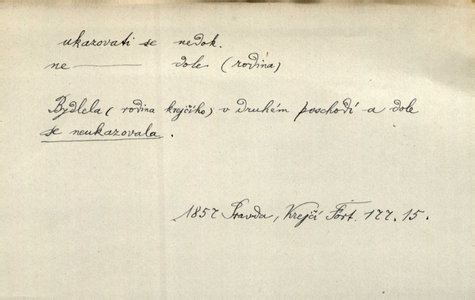 ukazovati se nedok.
ne——— dole (rodina)
Bydlela (rodina krejčího) v druhém poschodí a dole
se neukazovala.
1857 Pravda, Krejčí Fort. 177.15.